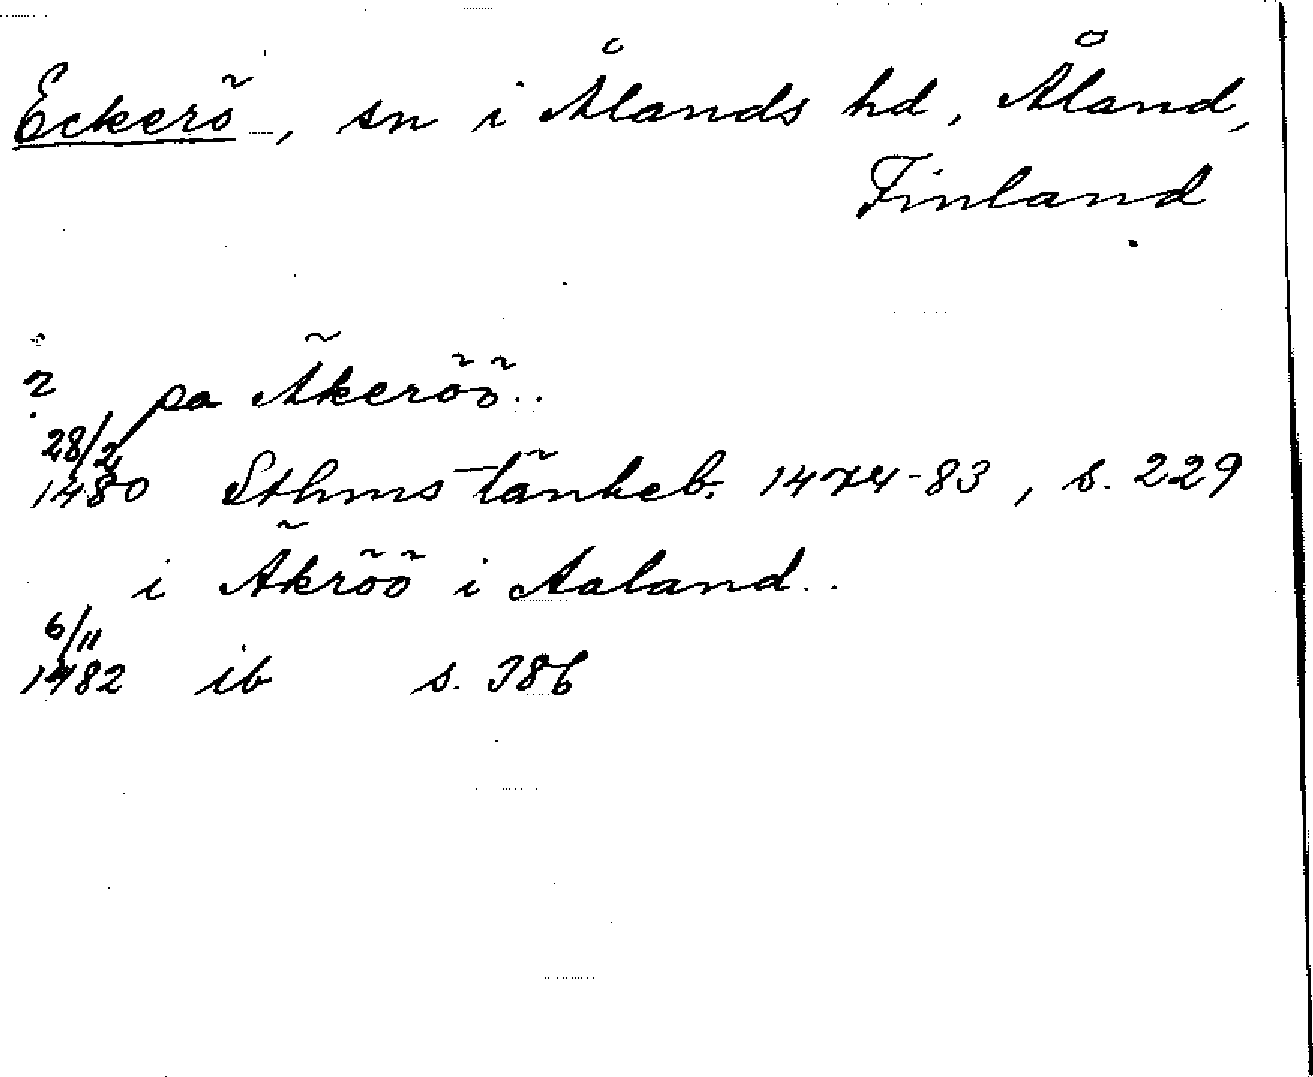 Eckerö, sn i Ålands hd, Åland,
Finland
? pa Äkeröö..
28/2
1480 Sthms tänkeb. 1474-83, s. 229
i Äkröö i Aaland..
6/11
1482 ib s. 386